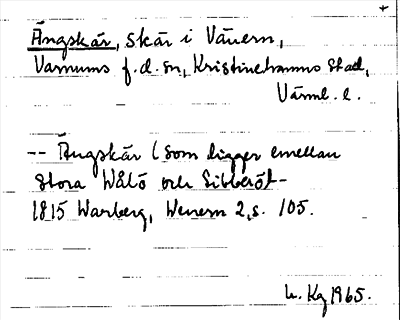 Ängskär, skär i Vänern,
Varnums f.d. sn, Kristinehamns stad,
Värml. l.
-- Ängskär (som ligger emellan
Stora Wålö och Sibberöt-
1815 Warberg, Wenern 2, s. 105.
Kg 1965.